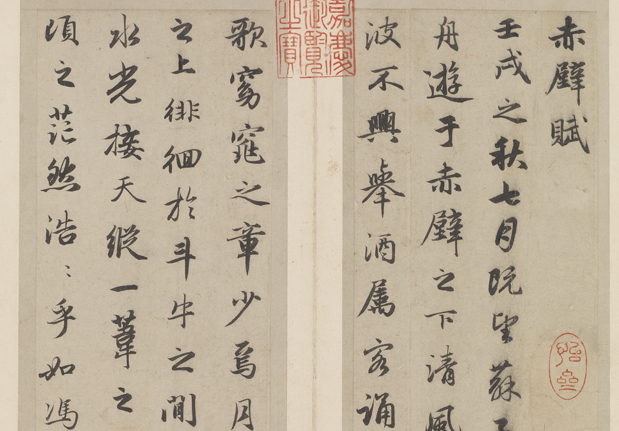 赤壁賦
壬戌之秋七月既望蘇子
舟遊于赤壁之下清風
波不興舉酒属客誦
歌窈窕之章少焉月
之上徘徊於斗牛之間
水光接天縱一葦之
頃之茫然浩〻乎如馮
嘉慶御覽之寶